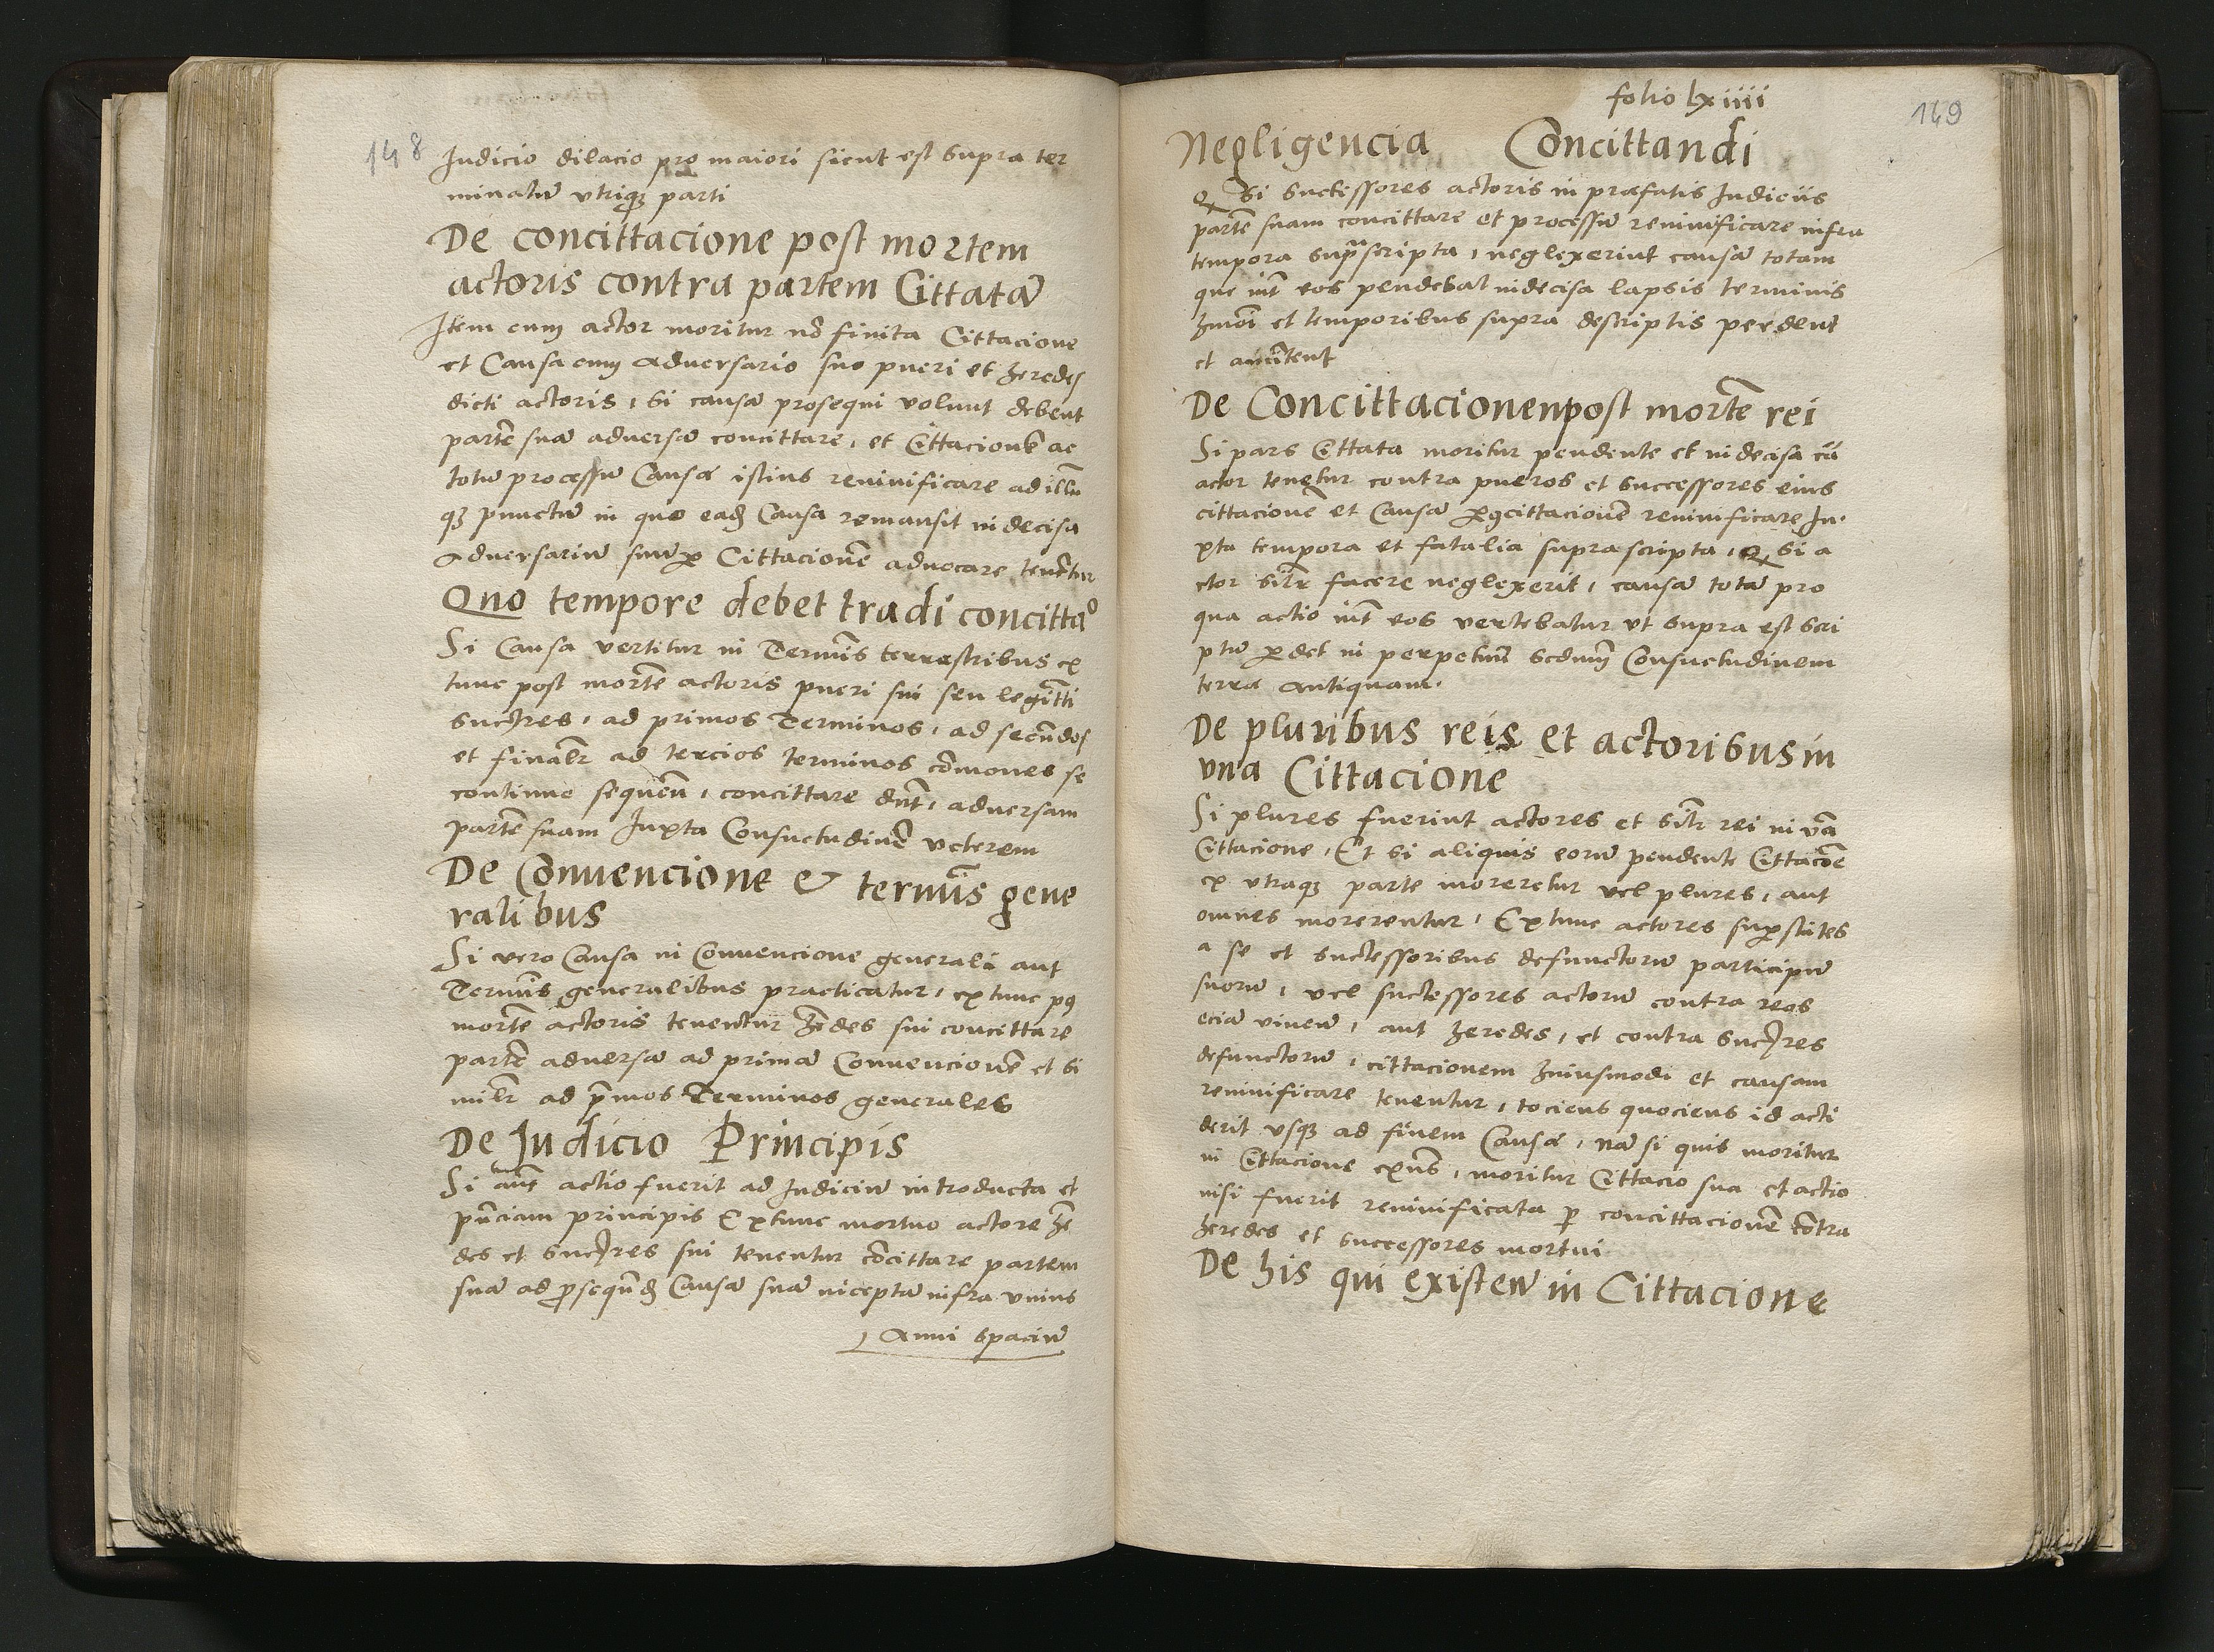 148
Judicio dilacio pro maiori sicut est supra ter
minatũ vtriqȝ parti
De concittacione post mortem
actoris contra partem Cittatã
Item cum actor moritur nõ finita Cittacione
et Causa cum adversario suo pueri et heredes
dicti actoris, si causã prosequi volunt debent
partẽ suã adversã concittare, et Cittacionẽ ac
totũ processũ Causæ istius revivificare ad illũ
qȝ punctũ in quo eadȝ Causa remansit indecisa
Adversariũ suũ ꝑ Cittacionẽ advocare tenẽtur
Quo tempore debet tradi concittaº
Si Causa vertitur in Termĩs terrestribus ex
tunc post mortẽ actoris pueri sui seu legittĩ
succ̃res, ad primos Terminos, ad secũdos
et finalr̃ ad tercios terminos cõmones se
continuo sequeñ, concittare dñt, adversam
partẽ suam Juxta Consuetudinẽ veterem
De Convencione & termĩs gene
ralibus
Si vero Causa in Convencione generali aut
Termĩs generalibus practicatur, ex tunc pꝰ
mortẽ actoris tenentur hẽdes sui concittare
partẽ adversã ad primã Convencionẽ et si
milr̃ ad p̃mos Terminos generales
De Judicio Principis
Si aũt actio fuerit ad Judiciũ introducta et
pñciam principis Extunc mortuo actore hẽ
des et succ̃res sui tenentur cõcittare partem
suã ad ꝓsequẽdȝ Causã suã inceptã infra unius
Anni spaciũ
folio lxiiii
149
Negligencia Concittandi
Qȝ si successores actoris in præfatis Judiciis
partẽ suam concittare et processũ revivificare infra
tempora supra scripta, neglexerint causã totam
que int̃ eos pendebat indecisa lapsis terminis
hmõi et temporibus supra descriptis perdent
et amittent
De Concittacionen post mortẽ rei
Si pars Cittata moritur pendente et indecisa cã
actor tenetur contra pueros et successores eius
cittacionẽ et Causã ꝑ ꝯcittacionẽ revivificare Ju
xta tempora et fatalia supra scripta, Qȝ si a
ctor silr̃ facere neglexerit, causã totã pro
qua actio int̃ eos vertebatur vt supra est scri
ptũ ꝑdet in perpetuũ scdum Consuetudinem
terræ Antiquam.
De pluribus reis et actoribus in
vna Cittacione
Si plures fuerint actores et silr̃ rei in vna
Cittacione, Et si aliquis eorũ pendente Cittacõe
ex vtraqȝ parte moreretur vel plures, aut
omnes morerentur, Extunc actores suꝑstites
a se et successoribus defunctorũ participũ
suorũ, vel successores actorũ contra reos
eciã viveñ, aut heredes, et contra succ̃res
defunctorũ, cittacionem huiusmodi et causam
revivificare tenentur, tociens quociens id acti
derit vsqȝ ad finem Causæ, nã si quis moritur
in Cittacione exñs, moritur Cittacio sua et actio
nisi fuerit revivificata ꝑ concittacionẽ cõtra
heredes et successores mortui
De his qui existeñ in Cittacione